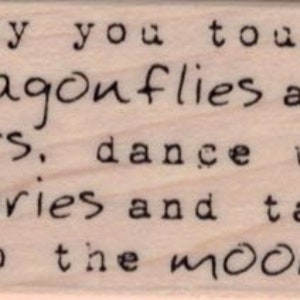 y you tou
agonflies a
rs, dance
ries and ta
o the moon